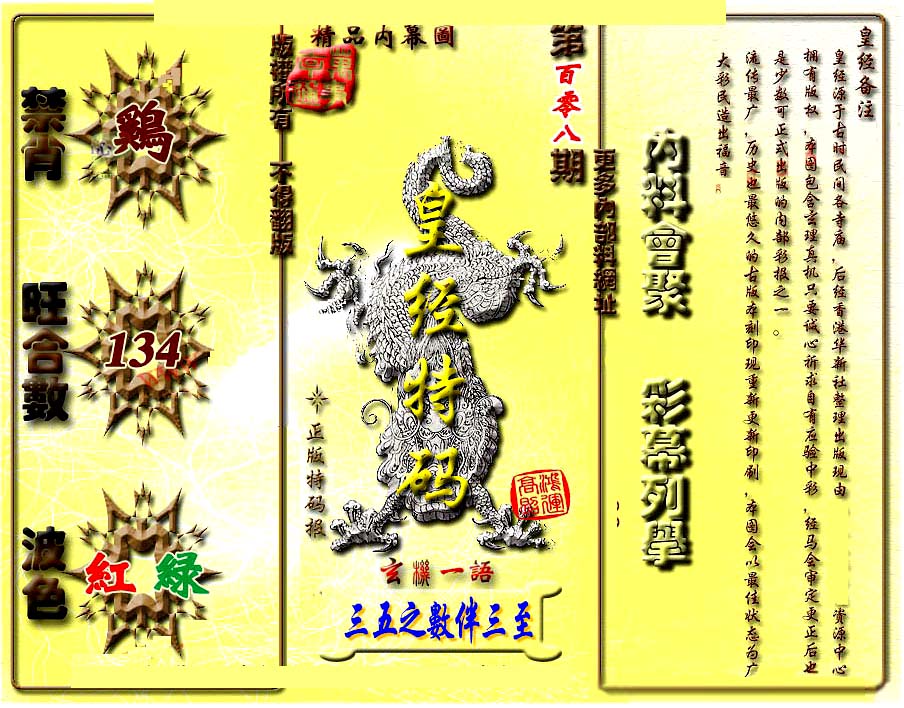 皇经备注
皇经源于古时民间各寺庙,后经香港华新社整理出版现由 资源中心
拥有版权,本图包含玄理真机只要诚心祈求自有应验中彩,经马会审定更正后也
是少数可正式出版的内部彩报之一。
流传最广,历史也最悠久的古版本刻印现重新更新印刷,本图会以最佳状态为广
大彩民造出福音。
内料會聚 彩幕列舉
更多內部料網址
第百零八期
精品内幕圖
皇经特码
正版特码报
鴻運高照
玄機一語
三五之數伴三至
版權所有 不得翻版
禁肖
鷄
旺合數
134
波色
紅 綠